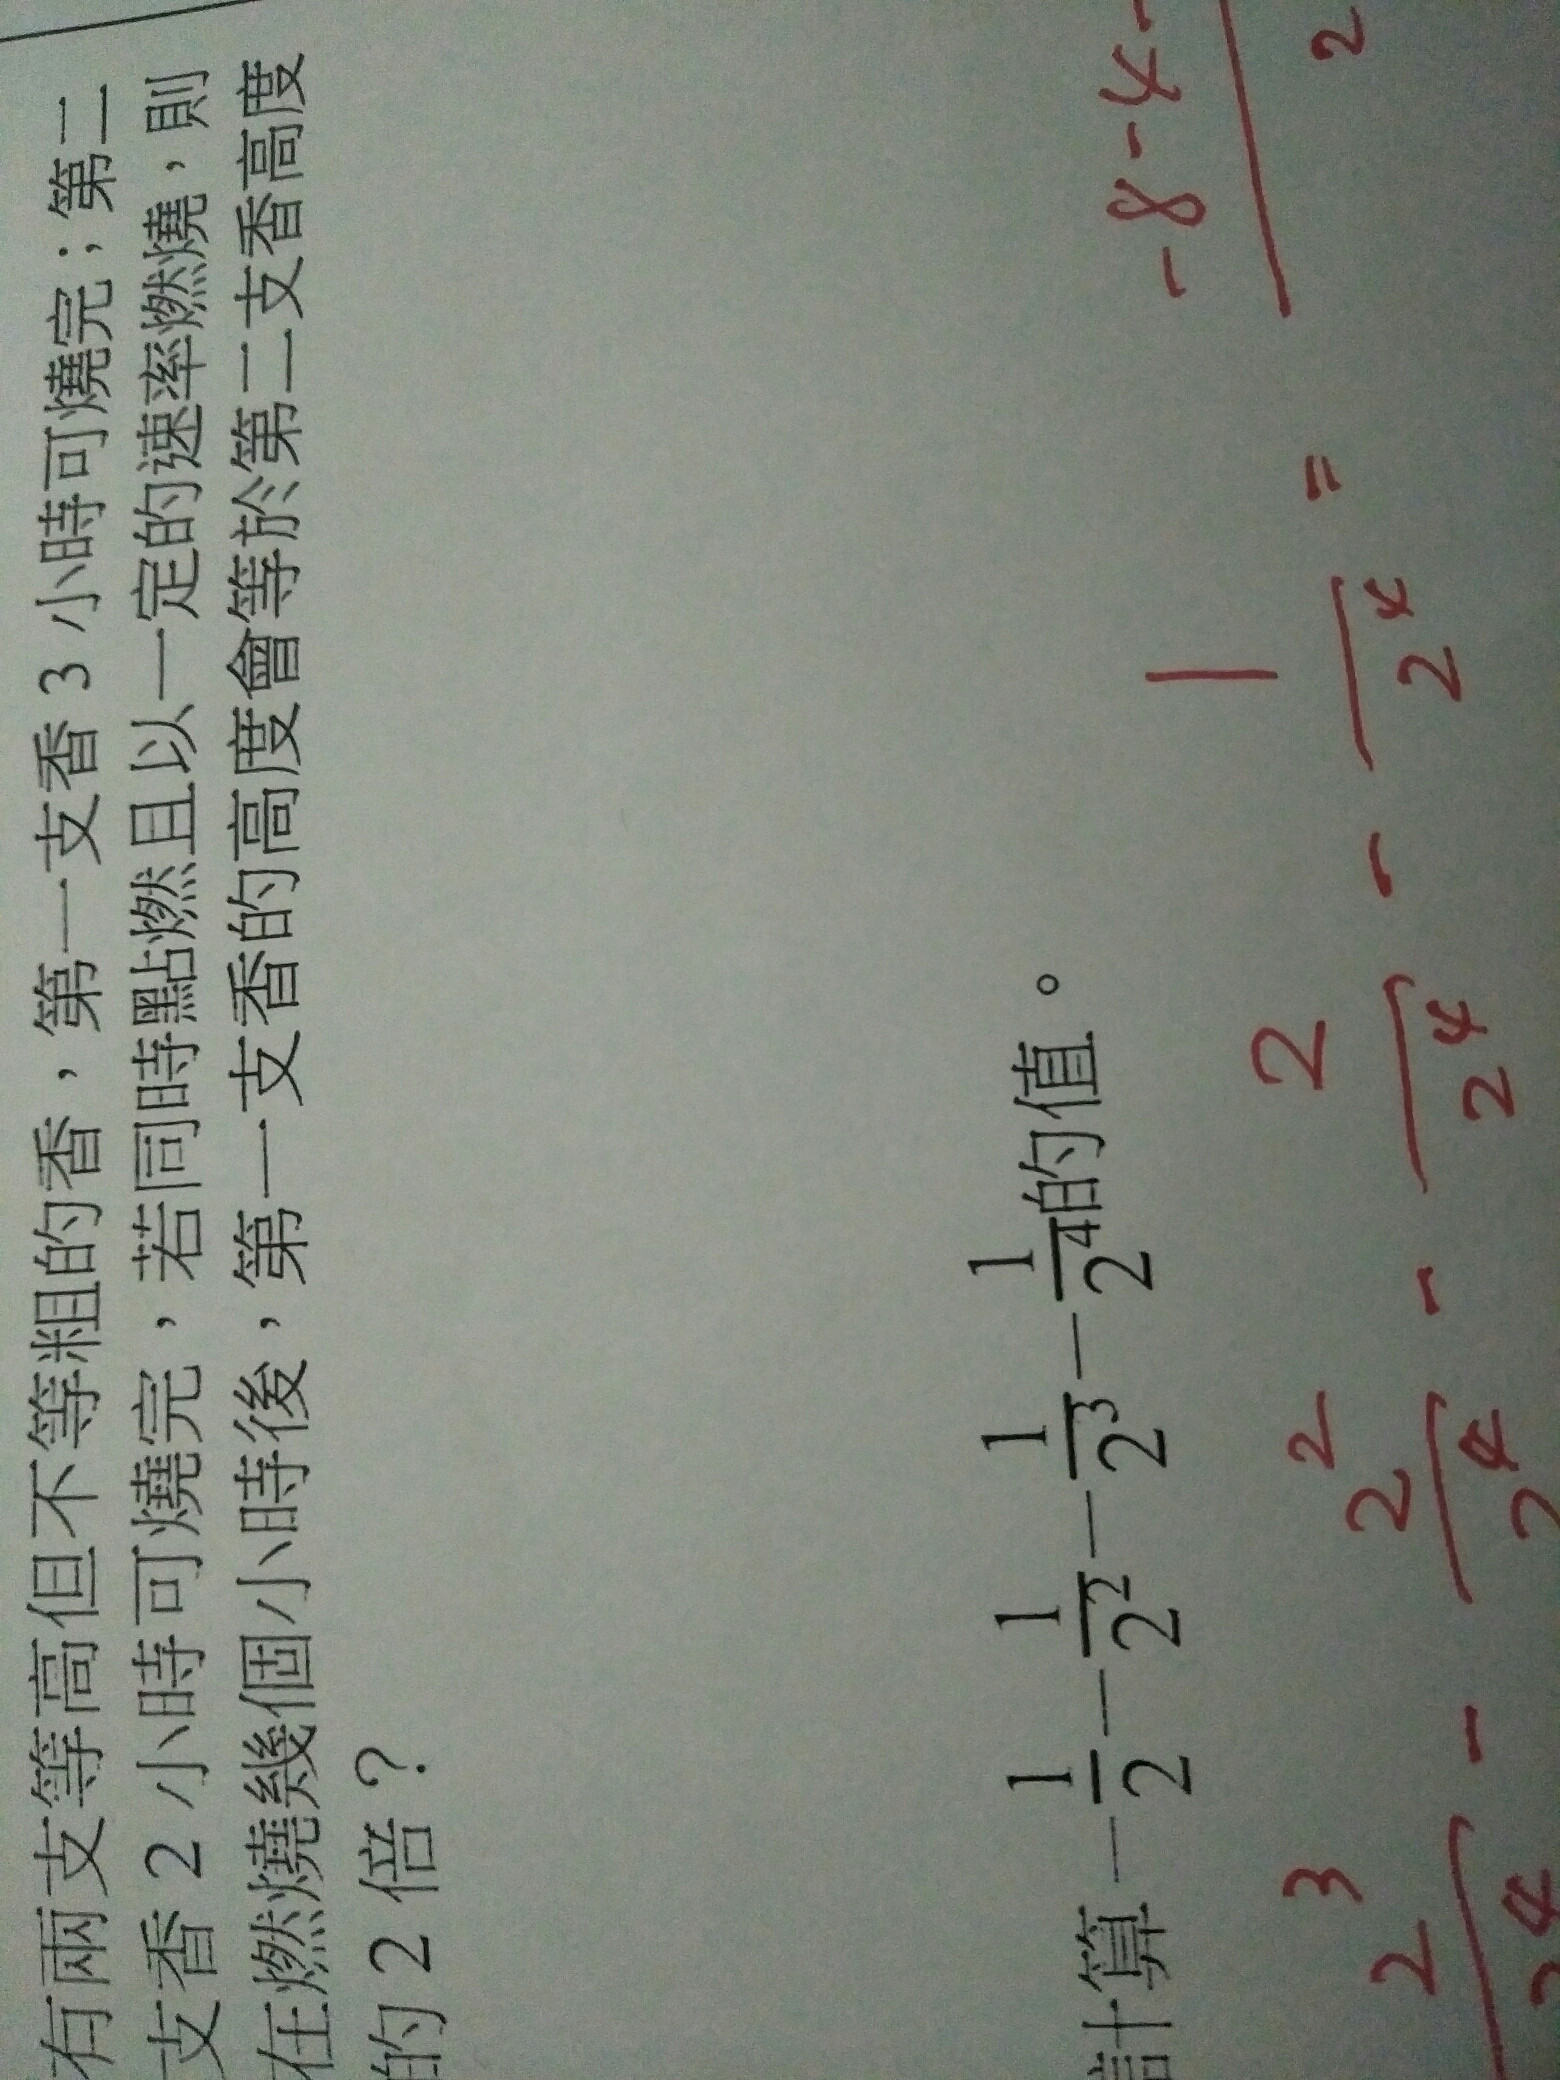 有兩支等高但不等粗的香，第一支香 3 小時可燒完；第二
支香 2 小時可燒完，若同時點燃且以一定的速率燃燒，則
在燃燒幾個小時後，第一支香的高度會等於第二支香高度
的 2 倍？
計算 -1/2 - 1/2² - 1/2³ - 1/2⁴ 的值。
2³/2⁴ - 2²/2⁴ - 2/2⁴ - 1/2⁴ = -8-4-/2